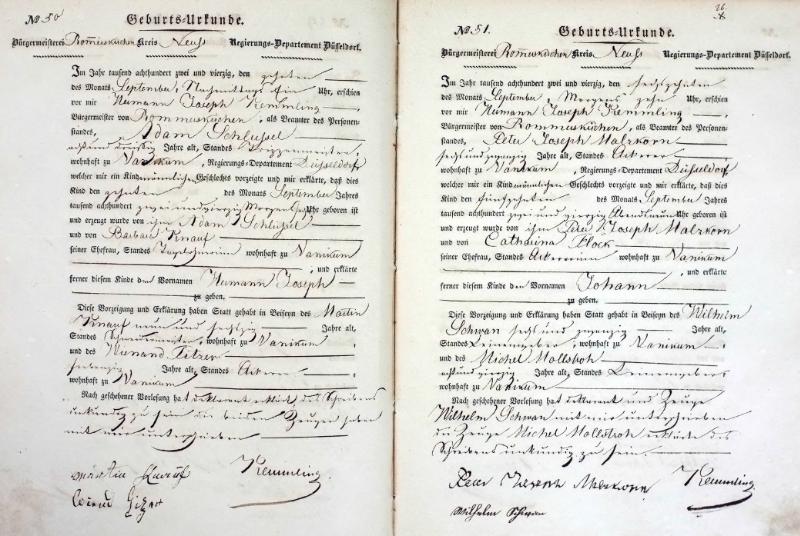 № 50
Geburts-Urkunde.
Bürgermeisterei Rommerskirchen Kreis Neuß Regierungs-Departement Düsseldorf.
Im Jahr tausend achthundert zwei und vierzig, den zehnten
des Monats September, Nachmittags ein Uhr, erschien
vor mir Hermann Joseph Kemmling
Bürgermeister von Rommerskirchen, als Beamter der Personen-
standes, Adam Schlüssel
acht und dreißig Jahre alt, Standes
wohnhaft zu Vanikum, Regierungs-Departement Düsseldorf
welcher mir ein Kind männlichen Geschlechts vorzeigte und mir erklärte, daß dies
Kind den zehnten des Monats September Jahres
tausend achthundert zwei und vierzig Morgens Uhr geboren ist
und erzeugt wurde von ihm Adam Schlüssel
und von Barbara Knauf
seiner Ehefrau, Standes wohnhaft zu Vanikum
, und erklärte
ferner diesem Kinde den Vornamen Hermann Joseph
zu geben.
Diese Vorzeigung und Erklärung haben Statt gehabt in Beiseyn des Martin
Knauf neun und sechszig Jahre alt,
Standes , wohnhaft zu Vanikum
und des Winand
siebenzig Jahre alt, Standes Ackerer
wohnhaft zu Vanikum
Nach geschehener Vorlesung hat deklarant erklärt des Schreibens
unkundig zu sein die beiden Zeugen haben
mit mir unterschrieben
Martin Knauf Kemmling
26.
№ 51.
Geburts-Urkunde.
Bürgermeisterei Rommerskirchen Kreis Neuß Regierungs-Departement Düsseldorf.
Im Jahr tausend achthundert zwei und vierzig, den sechszehnten
des Monats September, Morgens zehn Uhr, erschien
vor mir Hermann Joseph Kemmling
Bürgermeister von Rommerskirchen, als Beamter des Personen-
standes, Peter Joseph Malzkorn
sechs und zwanzig Jahre alt, Standes Ackerer
wohnhaft zu Vanikum, Regierungs-Departement Düsseldorf
welcher mir ein Kind männlichen Geschlechts vorzeigte und mir erklärte, daß dies
Kind den fünfzehnten des Monats September Jahres
tausend achthundert zwei und vierzig Abends neun Uhr geboren ist
und erzeugt wurde von ihm Peter Joseph Malzkorn
und von Catharina Flock
seiner Ehefrau, Standes Ackererin wohnhaft zu Vanikum
, und erklärte
ferner diesem Kinde den Vornamen Johann
zu geben.
Diese Vorzeigung und Erklärung haben Statt gehabt in Beiseyn des Wilhelm
Schwan sechs und zwanzig Jahre alt,
Standes Leineweber, wohnhaft zu Vanikum
und des Michel Hallstoh
acht und vierzig Jahre alt, Standes Leinewebers
wohnhaft zu Vanikum
Nach geschehener Vorlesung hat deklarant und Zeuge
Wilhelm Schwan mit mir unterschrieben
der Zeuge Michel Hallstoh erklärte des
Schreibens unkundig zu sein
Peter Joseph Malzkorn Kemmling
Wilhelm Schwan